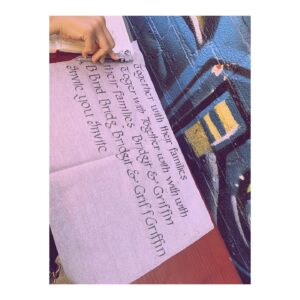 Together with their families
Toger with Together with with with
their families Bridgit & Griffin
B Brid Bridg Bridgit & Griff Griffin
Invite you Invite